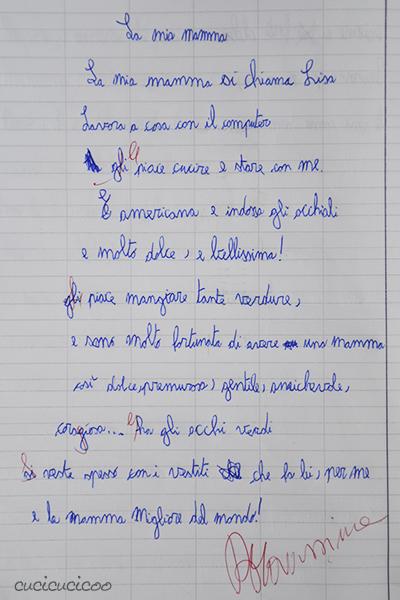 La mia mamma
La mia mamma si chiama Lisa
Lavora a casa con il computer
gli piace cucire e stare con me.
È americana e indossa gli occhiali
e molto dolce, e bellissima!
gli piace mangiare tante verdure,
e sono molto fortunata di avere una mamma
così dolce, premurosa, gentile, amichevole,
coragiosa... ha gli occhi verdi
Si veste spesso con i vestiti che fa lei, per me
e la mamma migliore del mondo!
cucicucicoo